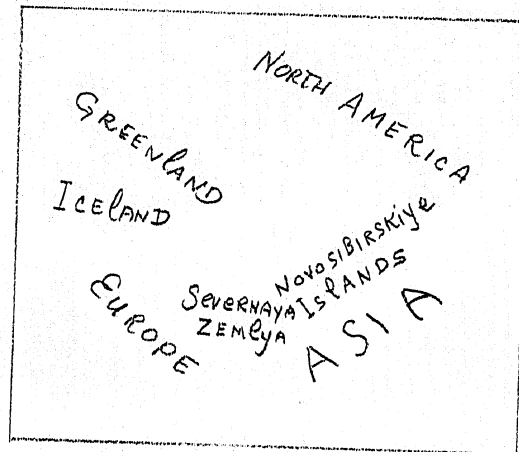 NORTH AMERICA
GREENLAND
ICELAND
NOVOSIBIRSKIYE
ISLANDS
SEVERNAYA
ZEMLYA
EUROPE
ASIA